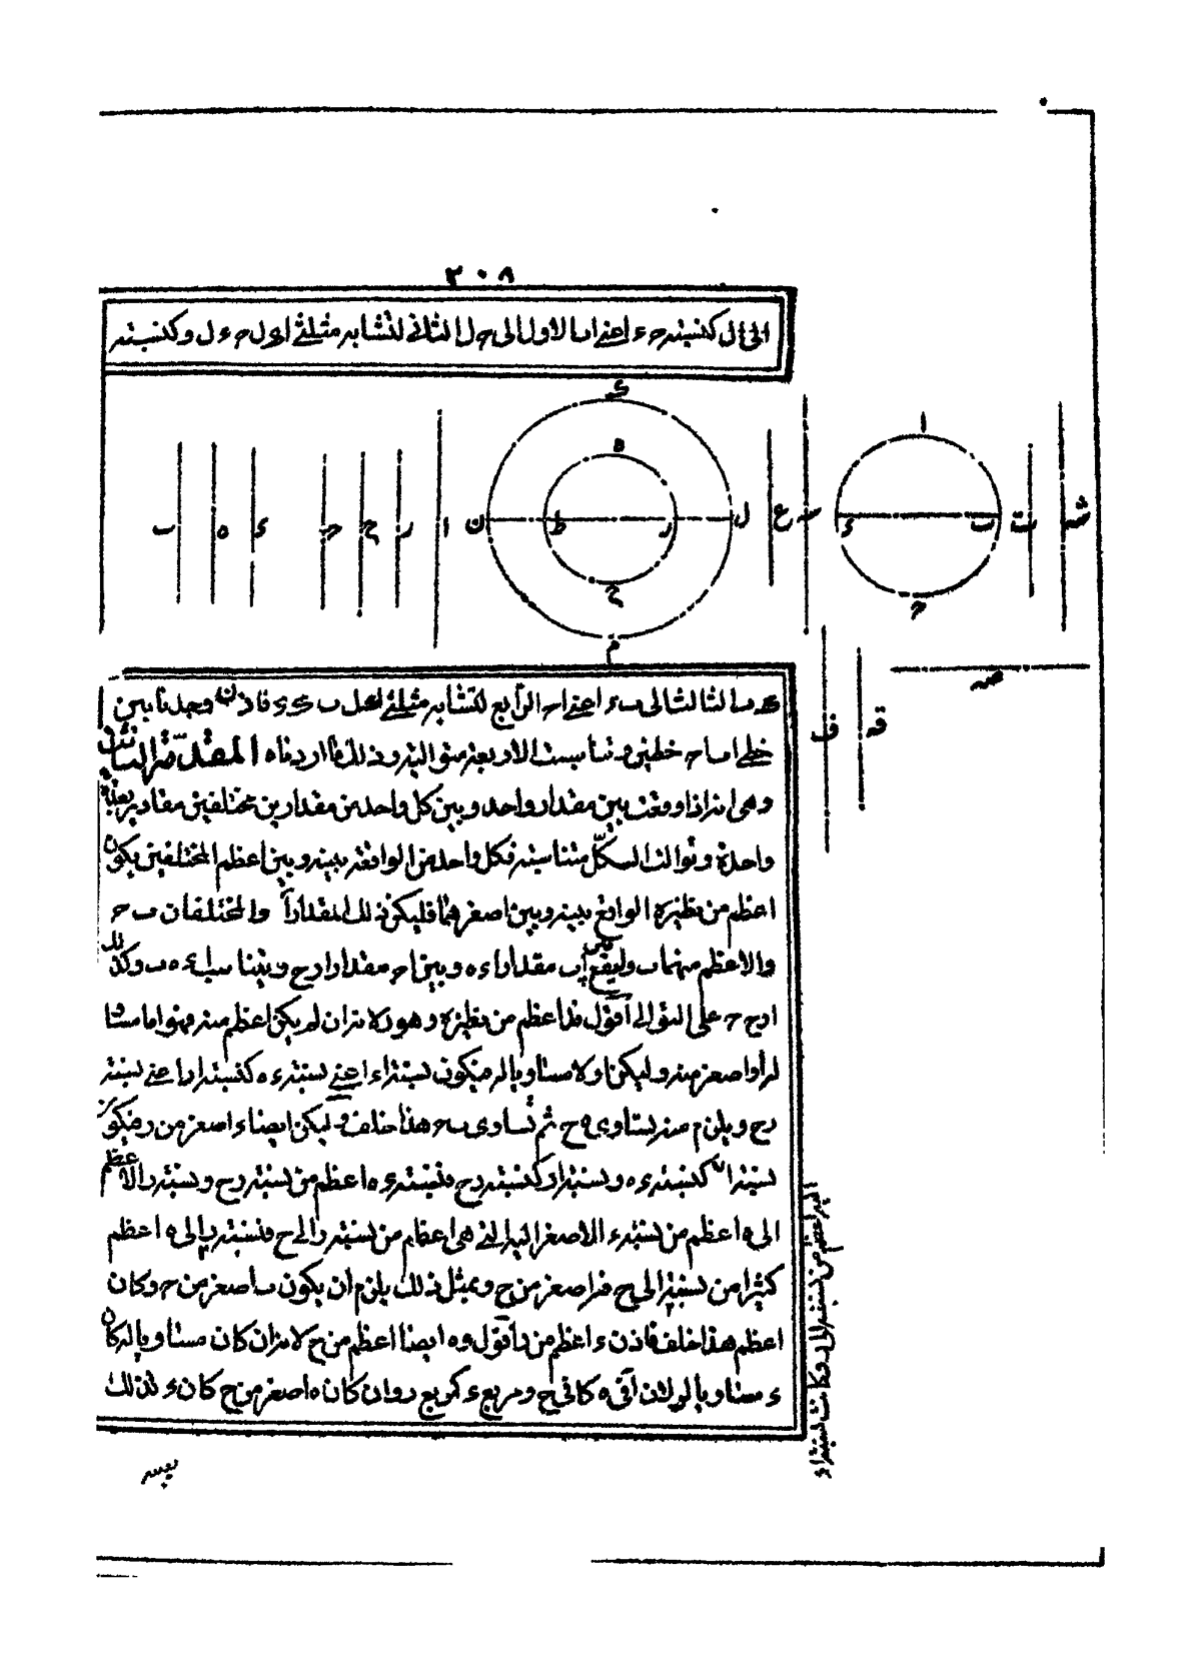 ٣٠٨
الى ال كنسبة حء اعنى اب الاول الى حل الثانى لتشابه مثلثى اءل حءل وكنسبته
ى
ا ه
ب ه ء ح ج ر ا ن ط ر ل ع س ء ب ت ث
ح ح
م
ص
ف ق
ب الثالث الى بء اعنى اح الرابع لتشابه مثلثى ل ب ء فاذن وجدنا بين
خطى اب اح خطين وتناسبت الاربعة متوالية وذلك ما اردناه المقدمة الثانية
وهى انه اذا وقعت بين مقدار واحد وبين كل واحد من مقدارين مختلفين مقادير بعدة
واحدة وتوالت الكل متناسبة فكل واحد من الواقعة بينه وبين اعظم المختلفين يكون
اعظم من نظيره الواقع بينه وبين اصغرهما فليكن ذلك المقدار ا والمختلفان ب ح
والاعظم منهما ب وليقع بين اب مقدارا ء ه وبين اح مقدارا ر ج ويتناسب اء ه ب وكذلك
ا ر ج ح على التوالى اقول فء اعظم من نظيره وهو ر لانه ان لم يكن اعظم منه فهو اما مساو
له او اصغر منه وليكن اولا مساويا له فيكون نسبة اء اعنى نسبة ء ه كنسبة ار اعنى نسبة
رج ويلزم منه تساوى ه ج ثم تساوى ب ح هذا خلف وليكن ايضا ء اصغر من ر فيكون
نسبة اء كنسبة ء ه ونسبة ار كنسبة رج فنسبة ء ه اعظم من نسبة رج ونسبة ر الاعظم
الى ه اعظم من نسبة ء الاصغر اليه التى هى اعظم من نسبة ر الى ج فنسبة ر الى ه اعظم
كثيرا من نسبته الى ج فه اصغر من ج وبمثل ذلك يلزم ان يكون ب اصغر من ح وكان
اعظم هذا خلف فاذن ء اعظم من ر اقول وه ايضا اعظم من ج لانه ان كان مساويا له كان
ء مساويا لر لان ا فى ه كا فى ج ومربع ء كمربع ر وان كان ه اصغر من ج كان ء لذلك
اليه اعظم من نسبته الى ر وكانت نسبة اء